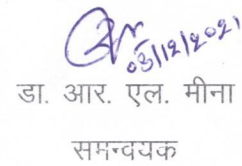 03/12/2021
डा. आर. एल. मीना
समन्वयक